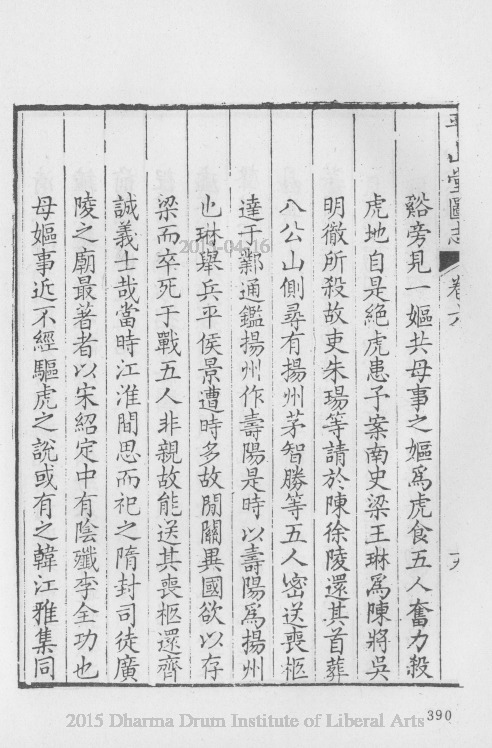 平山堂圖志
卷六
谿旁見一嫗共母事之嫗爲虎食五人奮力殺
虎地自是絶虎患予案南史梁王琳爲陳將吳
明徹所殺故吏朱瑒等請於陳徐陵還其首葬
八公山側尋有揚州茅智勝等五人密送喪柩
達于鄴通鑑揚州作壽陽是時以壽陽爲揚州
也琳舉兵平侯景遭時多故閒關異國欲以存
梁而卒死于戰五人非親故能送其喪柩還齊
誠義士哉當時江淮間思而祀之隋封司徒廣
陵之廟最著者以宋紹定中有陰殲李全功也
母嫗事近不經驅虎之說或有之韓江雅集同
2013-04-16
390
2015 Dharma Drum Institute of Liberal Arts